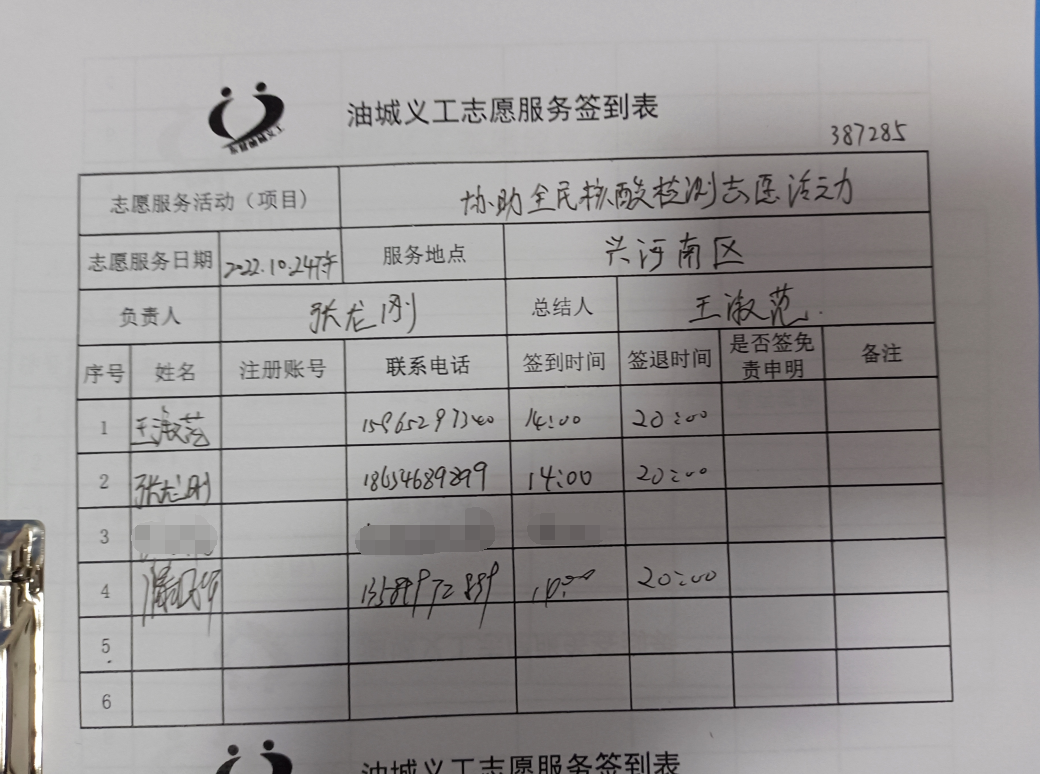 油城义工志愿服务签到表
387285
志愿服务活动（项目） 协助全民核酸检测志愿活动
志愿服务日期 2022.10.24 服务地点 兴河南区
负责人 张龙刚 总结人 王淑范
序号 姓名 注册账号 联系电话 签到时间 签退时间 是否签免责申明 备注
1 王淑范 15965297340 14:00 20:00
2 张龙刚 14:00 20:00
3
4 20:00
5
6
油城义工志愿服务签到表